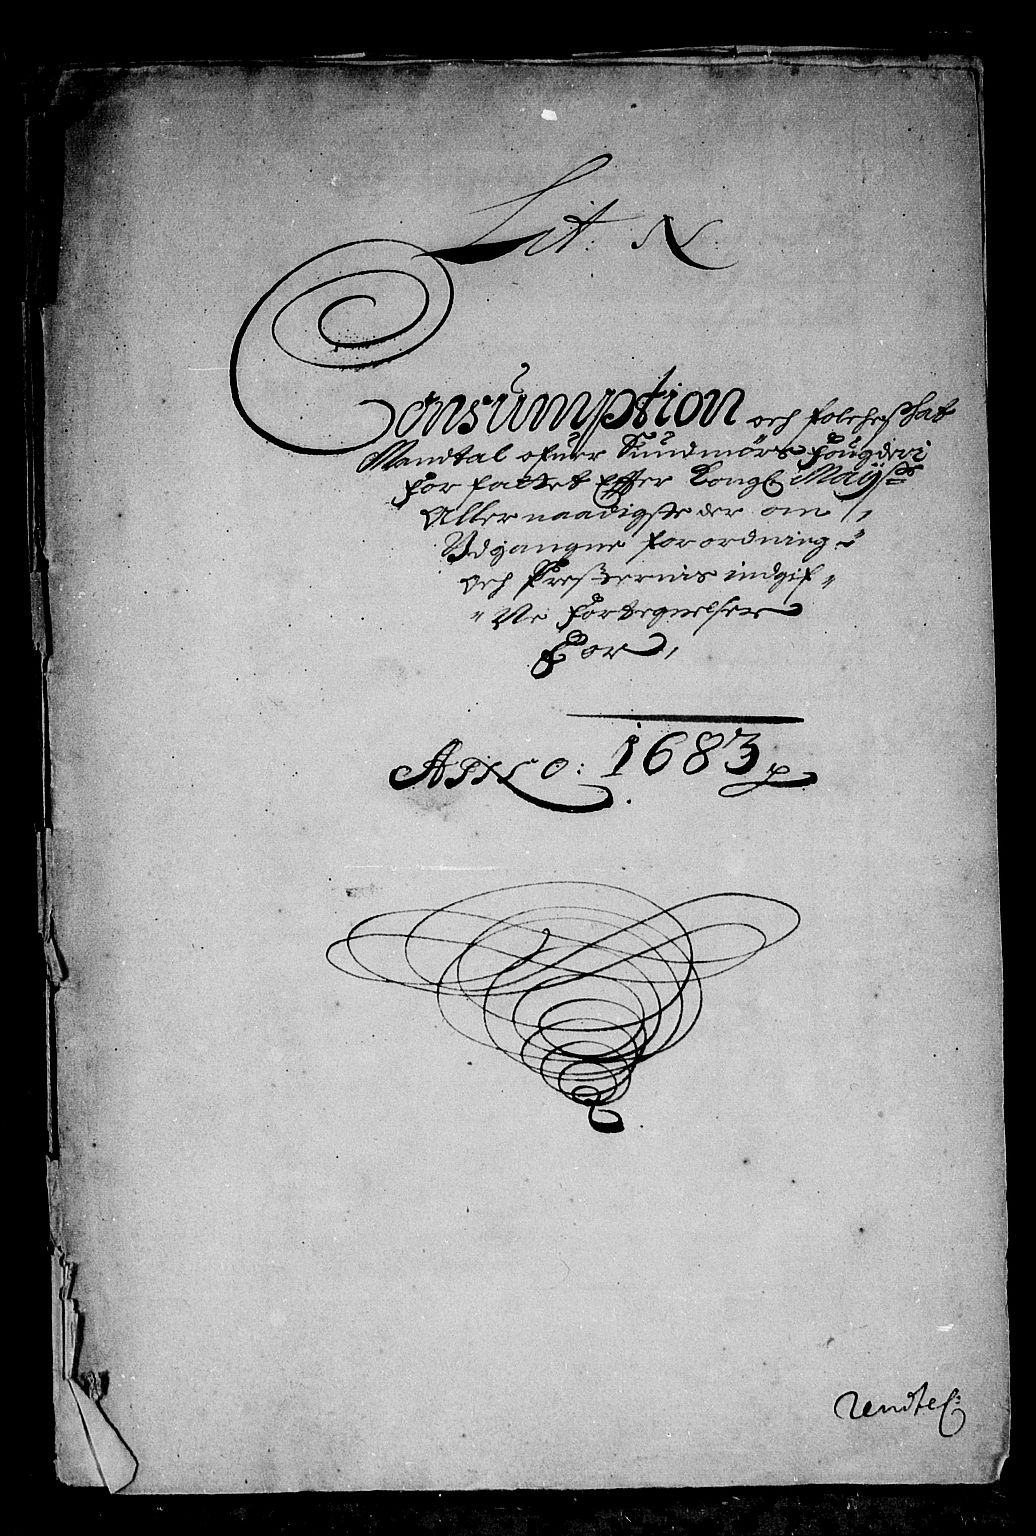 Lit: N
Consumption och folcheskat
Mandtal ofuer Sundmörs fougderi
forfattet Effter Kongl Mayst:
Allernaadigste der om
Udgangne forordning
och Presternis indgif„
„Ne fortegnelser
For,
Anno: 1683
Rendte C: